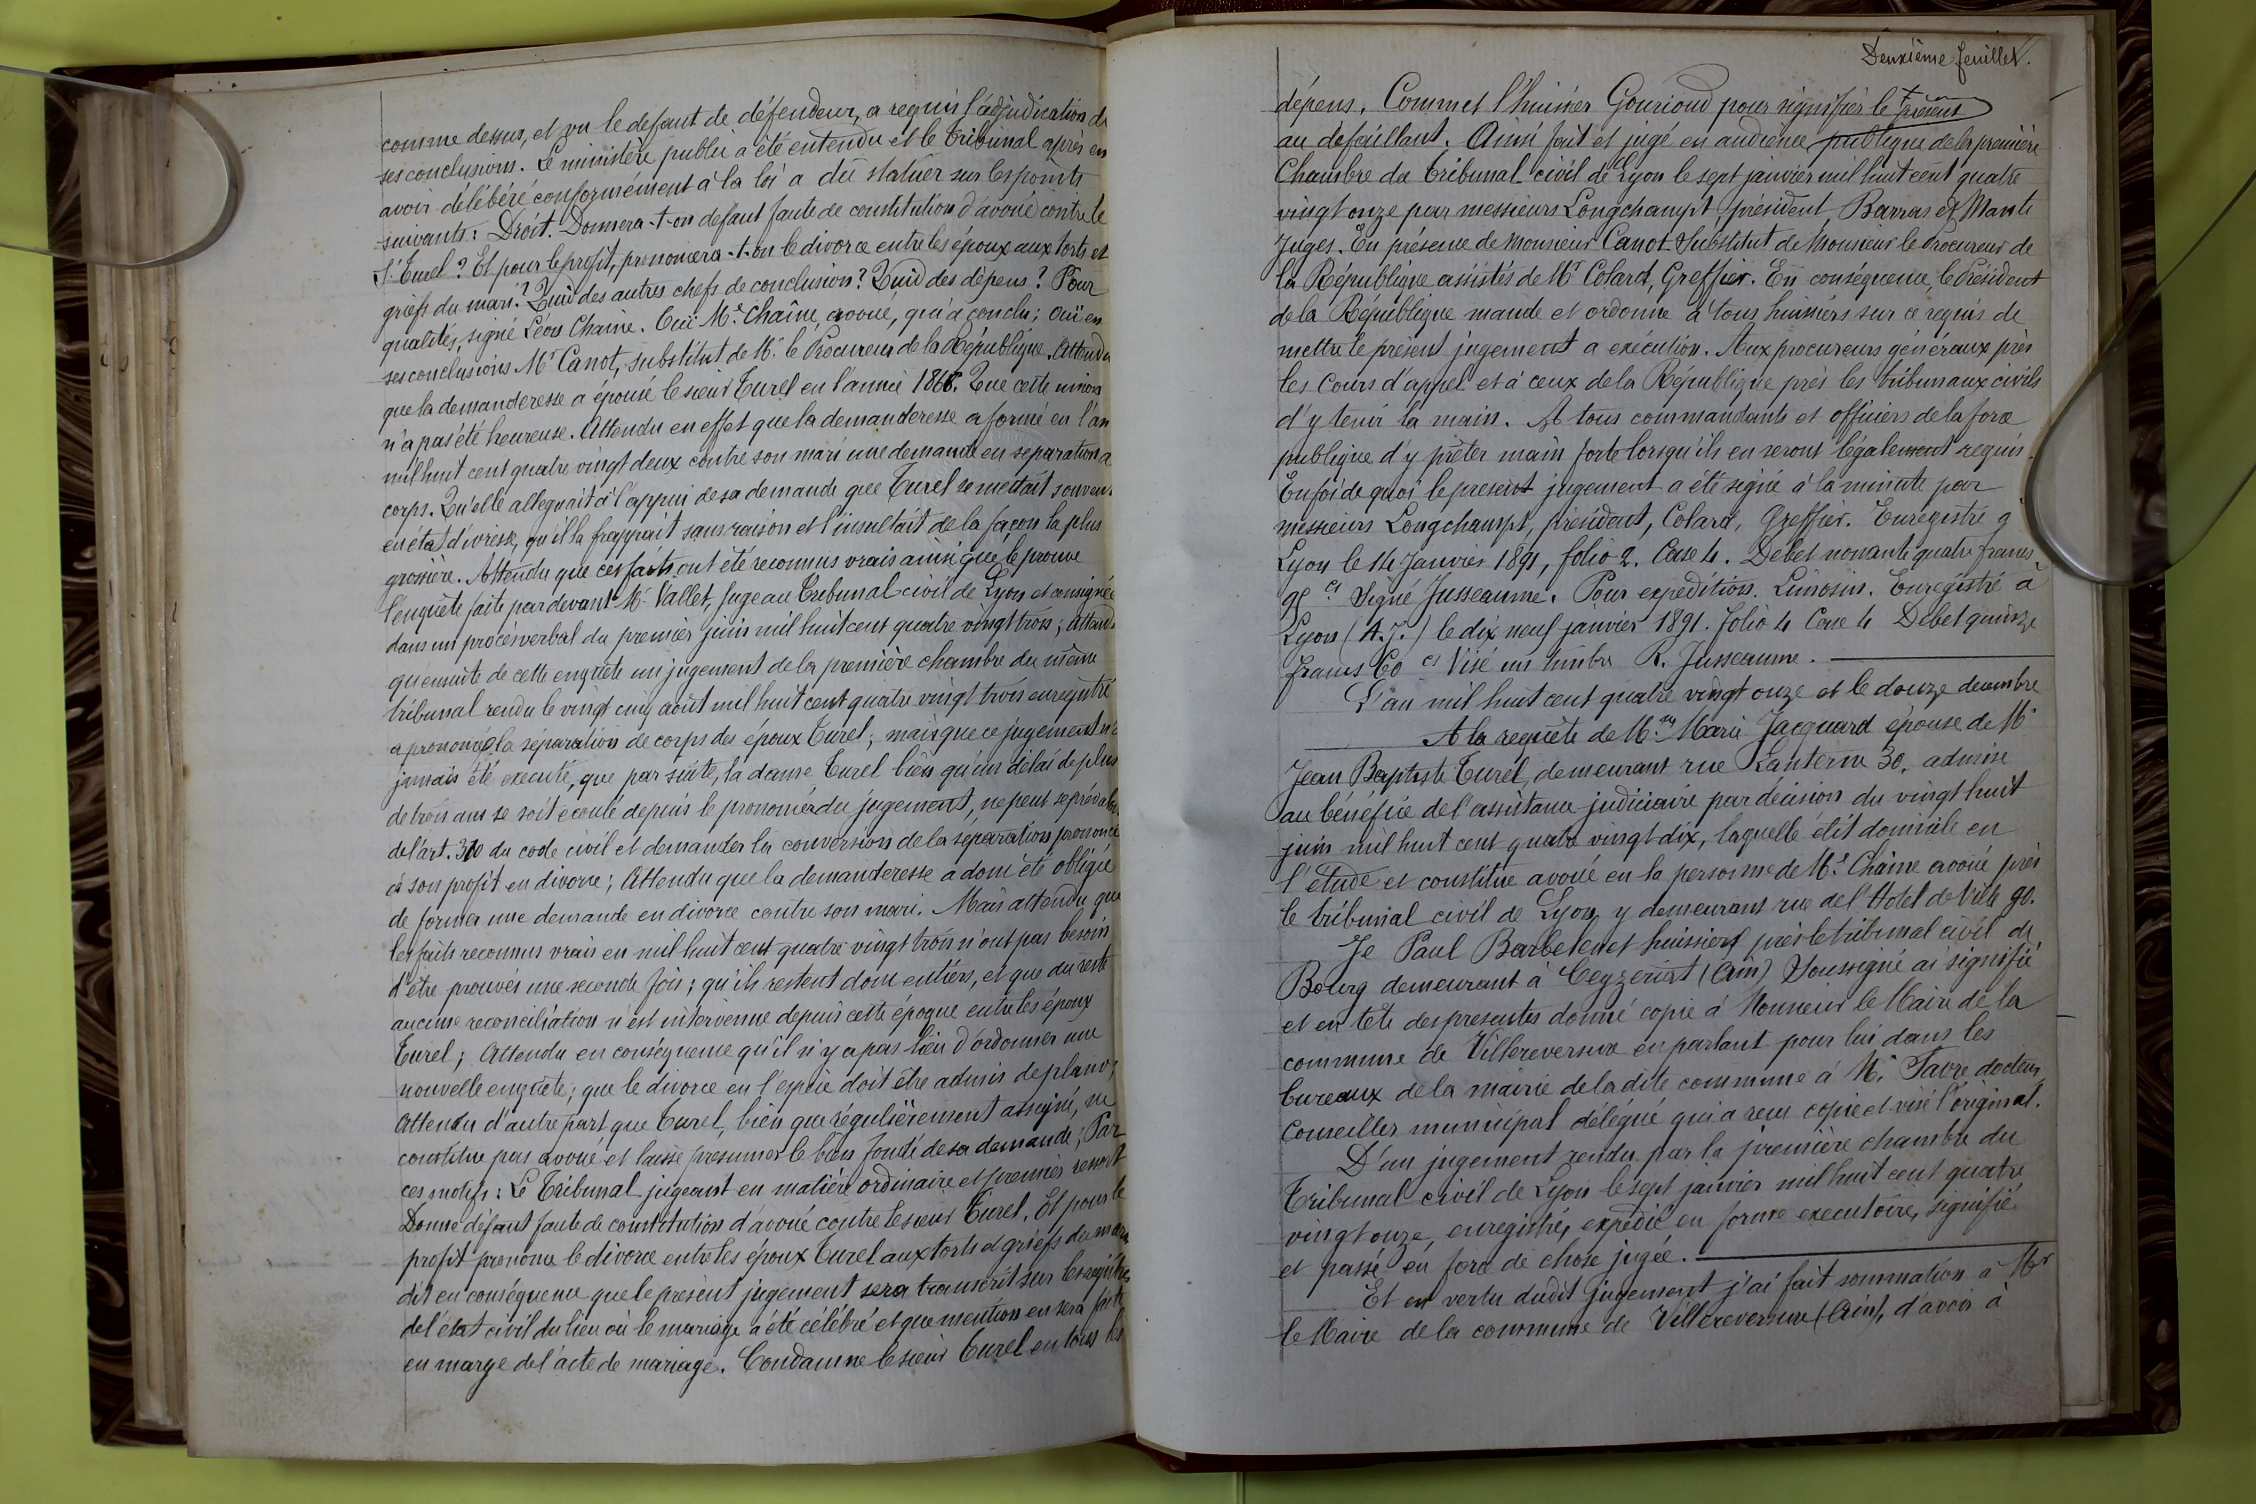 comme dessus, et vu le défaut de défendeur, a requis l'adjudication de
ses conclusions. Le ministère public a été entendu et le Tribunal après en
avoir délébéré conformément à la loi a dû statuer sur les points
suivants : Droit. Donnera-t-on défaut faute de constitution d'avoué contre le
Sr Turel ? Et pour le profit, prononcera-t-on le divorce entre les époux aux torts et
griefs du mari ? Quid des autres chefs de conclusion ? Quid des dépens ? Pour
qualités, signé Léon Chaine. Ouï Me Chaîne, avoué, qui a conclu ; ouï en
ses conclusions Mr Canot, substitut de Mr le Procureur de la République. Attendu
que la demanderesse a épousé le sieur Turel en l'année 1868. Que cette union
n'a pas été heureuse. Attendu en effet que la demanderesse a formé en l'an
mil huit cent quatre vingt deux contre son mari une demande en séparation de
corps. Qu'elle alléguait à l'appui de sa demande que Turel se mettait souvent
en état d'ivresse, qu'il la frappait sans raison et l'insultait de la façon la plus
grossière. Attendu que ces faits ont été reconnus vrais ainsi que le prouve
l'enquête faite par devant Mr Vallet, Juge au Tribunal civil de Lyon et consignée
dans un procès verbal du premier juin mil huit cent quatre vingt trois ; attendu
qu'ensuite de cette enquête un jugement de la première chambre du même
tribunal rendu le vingt cinq août mil huit cent quatre vingt trois enregistré
a prononcé la séparation de corps des époux Turel ; mais que ce jugement n'a
jamais été exécuté, que par suite, la dame Turel bien qu'un délai de plus
de trois ans se soit écoulé depuis le prononcé du jugement, ne peut se prévaloir
de l'art. 310 du code civil et demander la conversion de la séparation prononcée
à son profit en divorce ; Attendu que la demanderesse a donc été obligée
de former une demande en divorce contre son mari. Mais attendu que
les faits reconnus vrais en mil huit cent quatre vingt trois n'ont pas besoin
d'être prouvés une seconde fois ; qu'ils restent donc entiers, et que du reste
aucune reconciliation n'est intervenue depuis cette époque entre les époux
Turel ; Attendu en conséquence qu'il n'y a pas lieu d'ordonner une
nouvelle enquête ; que le divorce en l'espèce doit être admis de plano ;
Attendu d'autre part que Turel, bien que régulièrement assigné, ne
constitue pas avoué et laisse présumer le bien fondé de sa demande ; Par
ces motifs : Le Tribunal jugeant en matière ordinaire et premier ressort
Donne défaut faute de constitution d'avoué contre le sieur Turel. Et pour le
profit prononce le divorce entre les époux Turel aux torts et griefs du mari
dit en conséquence que le présent jugement sera transcrit sur les registres
de l'état civil du lieu où le mariage a été célébré et que mention en sera faite
en marge de l'acte de mariage. Condamne le sieur Turel en tous les
Deuxième feuillet.
dépens. Commet l'huissier Gourioud pour signifier le présent
au défaillant. Ainsi fait et jugé en audience publique de la première
Chambre du Tribunal civil de Lyon le sept janvier mil huit cent quatre
vingt onze par messieurs Longchampt, président, Barras et Mante
Juges. En présence de Monsieur Canot Substitut de Monsieur le Procureur de
la République assistés de Mr Colard, Greffier. En conséquence, le Président
de la République mande et ordonne à tous huissiers sur ce requis de
mettre le présent jugement a exécution. Aux procureurs généraux près
les Cours d'appel et à ceux de la République près les tribunaux civils
d'y tenir la main. A tous commandants et officiers de la force
publique d'y prêter main forte lorsqu'ils en seront légalement requis.
En foi de quoi le présent jugement a été signé à la minute par
messieurs Longchampt, président, Colard, Greffier. Enregistré à
Lyon le 14 Janvier 1891, folio 2. Case 4. Débet nonante quatre francs
95 cs Signé Jusseaume. Pour expédition. Limosin. Enregistré à
Lyon (A.J.) le dix neuf janvier 1891. folio 4 Case 4 Débet quinze
francs 60 cs Visé un timbre R. Jusseaume.
L'an mil huit cent quatre vingt onze et le douze décembre
A la requête de Mme Marie Jacquard épouse de Mr
Jean Baptiste Turel, demeurant rue Lanterne 30, admise
au bénéfice de l'assistance judiciaire par décision du vingt huit
juin mil huit cent quatre vingt-dix, laquelle élit domicile en
l'étude et constitue avoué en la personne de Me Chaîne avoué près
le tribunal civil de Lyon, y demeurant rue de l'Hotel de Ville 90.
Je Paul Barbelenet huissier près le tribunal civil de
Bourg demeurant à Ceyzeriat (Ain) Soussigné ai signifié
et en tête des présentes donné copie à Monsieur le Maire de la
commune de Villereversure en parlant pour lui dans les
bureaux de la mairie de la dite commune à Mr Favre docteur
Conseiller municipal délégué qui a reçu copie et visé l'original.
D'un jugement rendu par la première chambre du
Tribunal civil de Lyon le sept janvier mil huit cent quatre
vingt onze, enregistré, expédié en forme exécutoire, signifié
et passé en force de chose jugée.
Et en vertu dudit jugement j'ai fait sommation à Mr
le Maire de la commune de Villereversure (Ain), d'avoir à